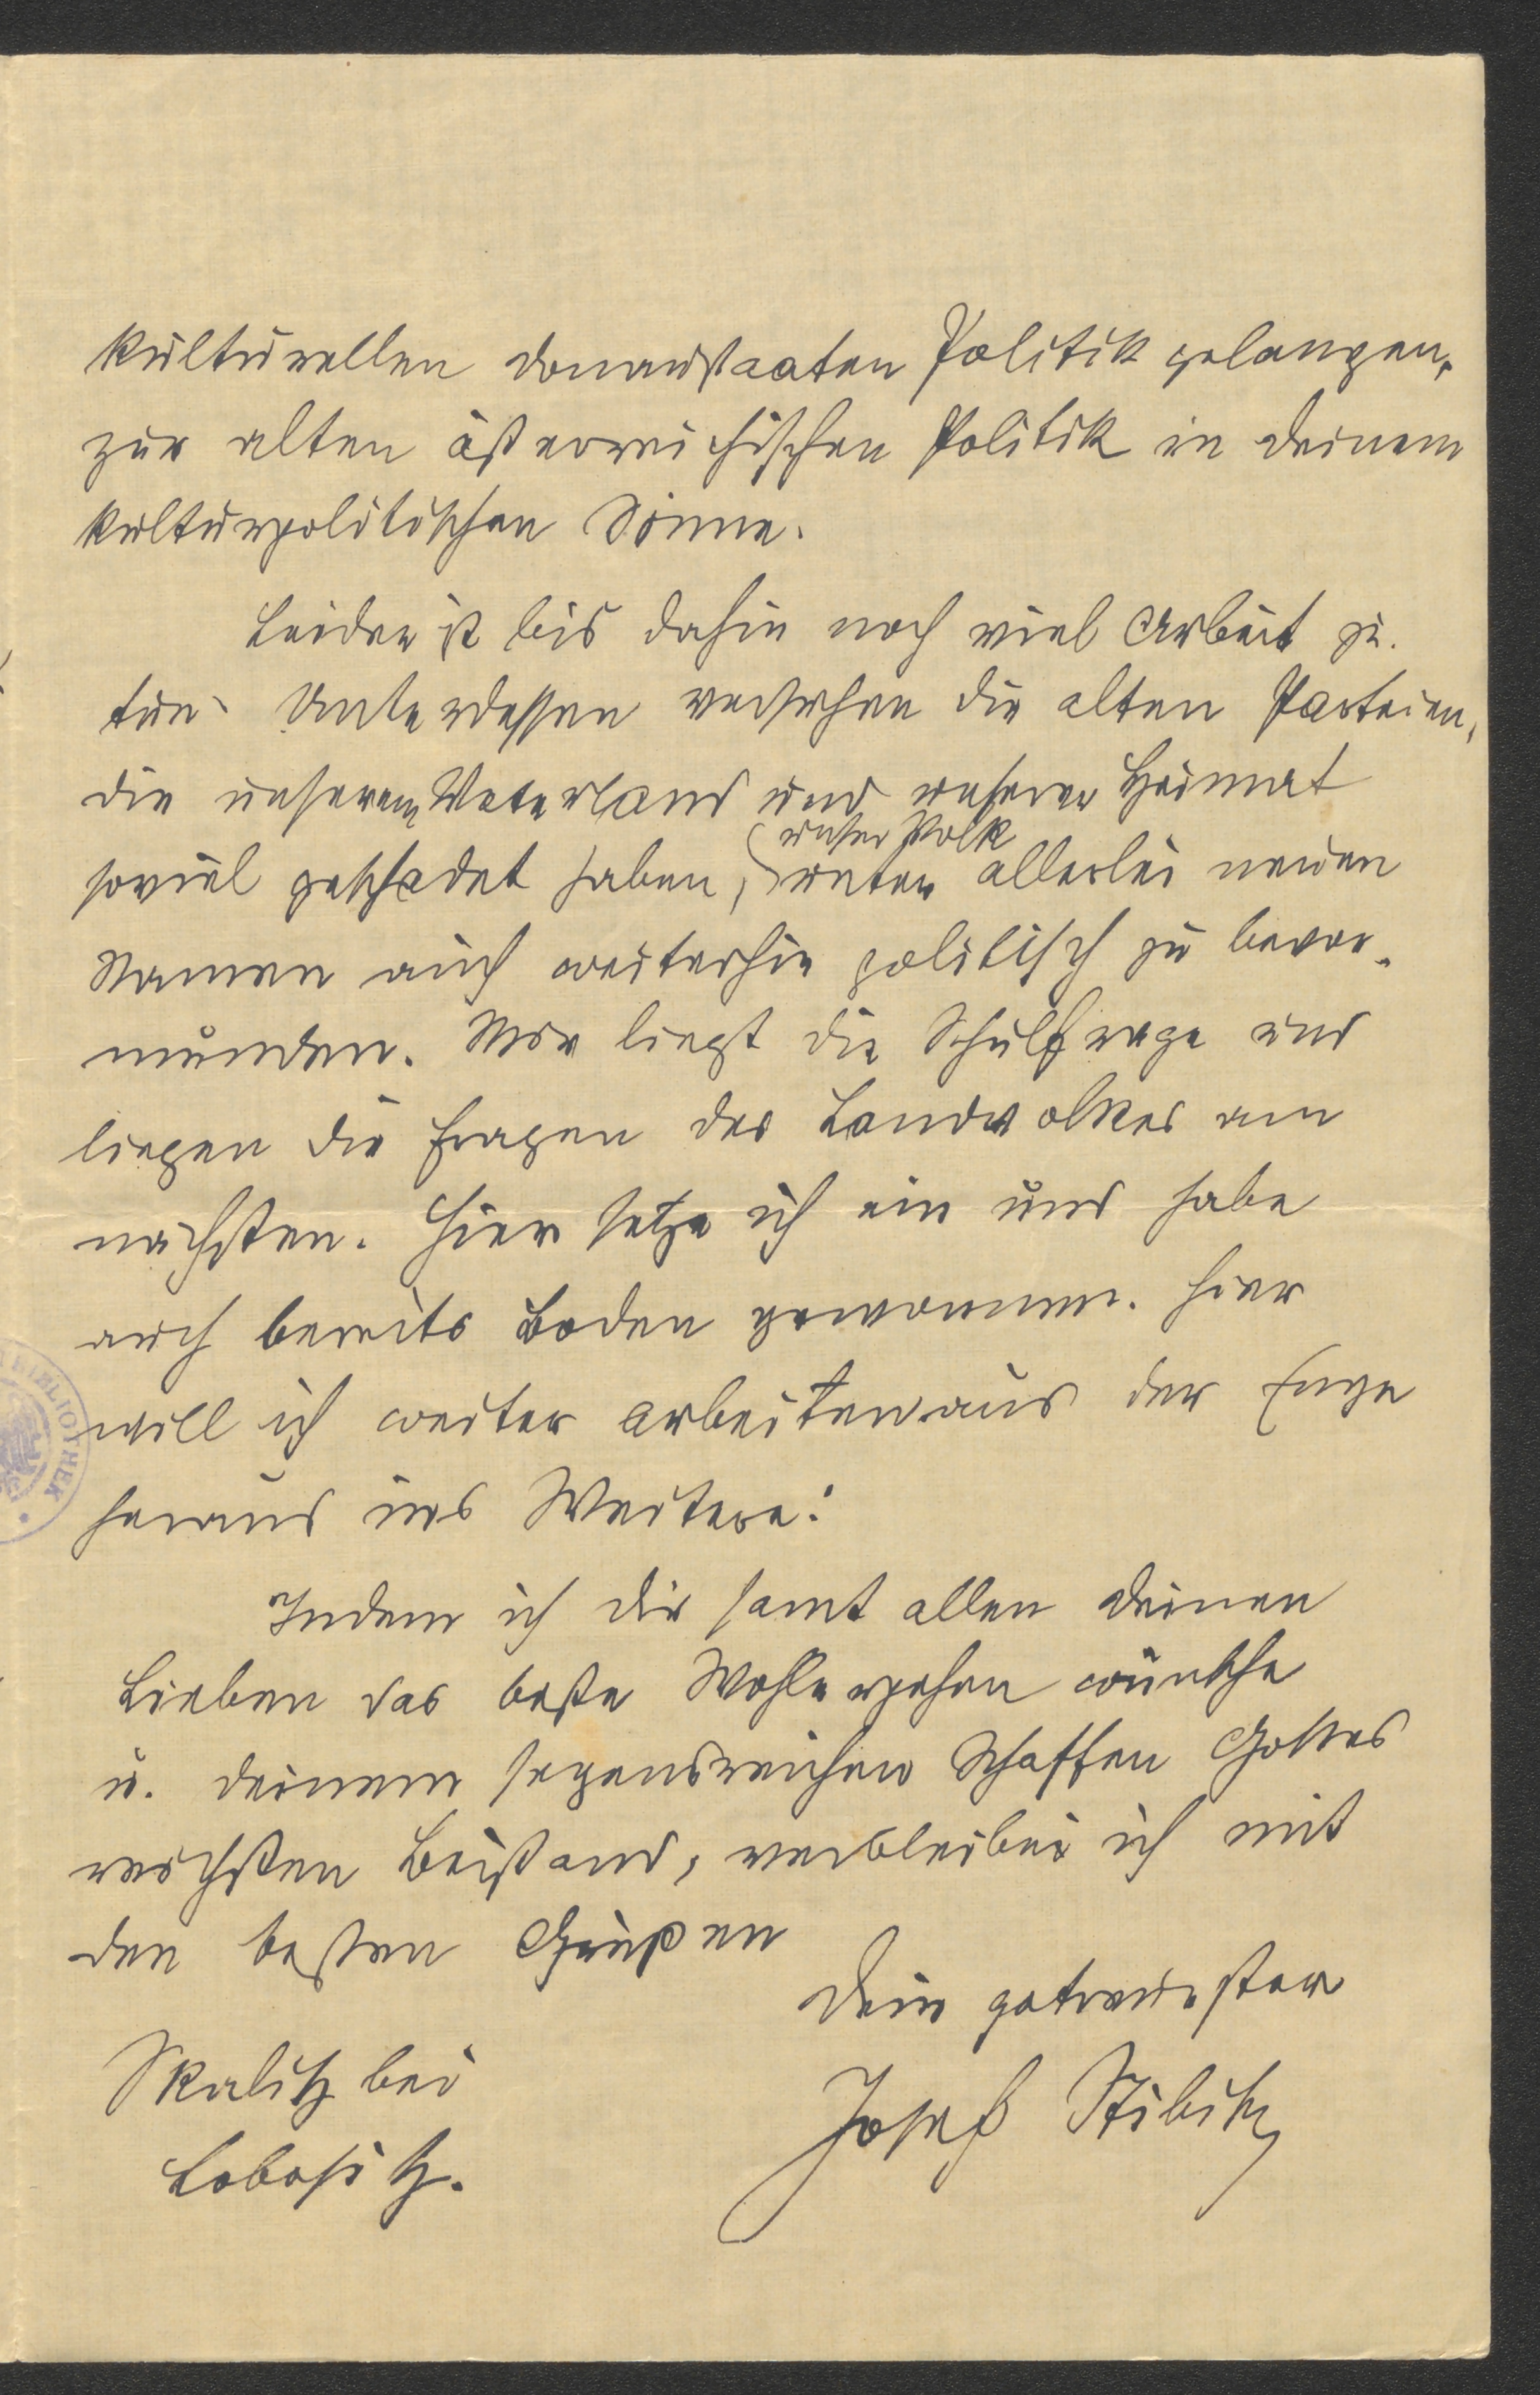 kulturellen Donaustaaten Politik gelangen,
zur alten österreichischen Politik in Deinem
kulturpolitischen Sinne.
Leider ist bis dahin noch viel Arbeit zu
tun. Unterdessen versuchen die alten Parteien,
die unserem Vaterland und unserer Heimat
unser Volk
soviel geschadet haben, unter allerlei neuen
Namen auch weiterhin politisch zu bevor-
munden. Mir liegt die Schulfrage und
liegen die Fragen des Landvolkes am
nächsten. Hier setze ich ein und habe
auch bereits Boden gewonnen. Hier
will ich weiter arbeiten aus der Enge
heraus ins Weitere!
Indem ich Dir samt allen Deinen
Lieben das beste Wohlergehen wünsche
u. Deinem segensreichen Schaffen Gottes
reichsten Beistand, verbleibe ich mit
den besten Grüßen
Dein getreuester
Skalitz bei
Josef Stibitz
Lobositz.
BIBLIOTHEK